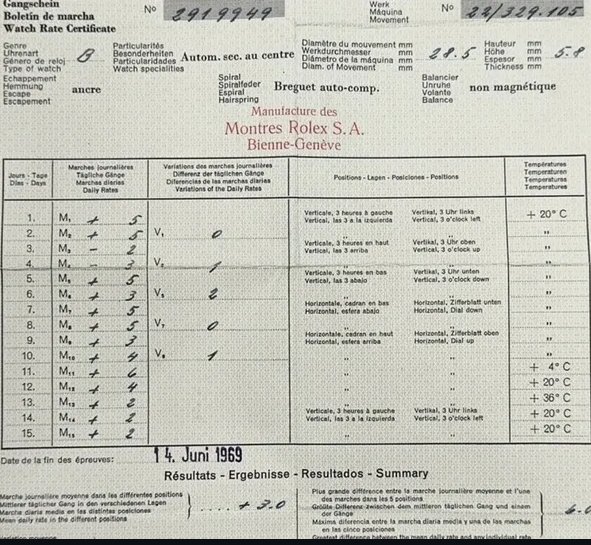 Gangschein
Boletin de marcha
Watch Rate Certificate
No 2919949
Werk
Máquina
Movement
No 22/329.105
Genre
Uhrenart
Género de reloj
Type of watch
B
Particularités
Besonderheiten
Particularidades
Watch specialities
Autom. sec. au centre
Diamètre du mouvement mm
Werkdurchmesser mm
Diámetro de la máquina mm
Diam. of Movement mm
28.5
Hauteur mm
Höhe mm
Espesor mm
Thickness mm
5.8
Echappement
Hemmung
Escape
Escapement
ancre
Spiral
Spiralfeder
Espiral
Hairspring
Breguet auto-comp.
Balancier
Unruhe
Volante
Balance
non magnétique
Manufacture des
Montres Rolex S.A.
Bienne-Genève
Jours - Tage
Dias - Days
Marches journalières
Tägliche Gänge
Marchas diarias
Daily Rates
Variations des marches journalières
Differenz der täglichen Gänge
Diferencias de las marchas diarias
Variations of the Daily Rates
Positions - Lagen - Posiciones - Positions
Températures
Temperaturen
Temperaturas
Temperatures
1. M1 + 5 Verticale, 3 heures à gauche Vertikal, 3 Uhr links + 20° C
Vertical, las 3 a la izquierda Vertical, 3 o'clock left
2. M2 + 5 V1 0 " " "
3. M3 - 2 Verticale, 3 heures en haut Vertikal, 3 Uhr oben "
Vertical, las 3 arriba Vertical, 3 o'clock up
4. M4 - 3 V3 1 " " "
5. M5 + 5 Verticale, 3 heures en bas Vertikal, 3 Uhr unten "
Vertical, las 3 abajo Vertical, 3 o'clock down
6. M6 + 3 V5 2 " " "
7. M7 + 5 Horizontale, cadran en bas Horizontal, Zifferblatt unten "
Horizontal, esfera abajo Horizontal, Dial down
8. M8 + 5 V7 0 " " "
9. M9 + 3 Horizontale, cadran en haut Horizontal, Zifferblatt oben "
Horizontal, esfera arriba Horizontal, Dial up
10. M10 + 4 V9 1 " " "
11. M11 + 6 " " + 4° C
12. M12 + 4 " " + 20° C
13. M13 + 2 " " + 36° C
14. M14 + 2 Verticale, 3 heures à gauche Vertikal, 3 Uhr links + 20° C
Vertical, las 3 a la izquierda Vertical, 3 o'clock left
15. M15 + 2 " " + 20° C
Date de la fin des épreuves: 14. Juni 1969
Résultats - Ergebnisse - Resultados - Summary
Marche journalière moyenne dans les différentes positions
Mittlerer täglicher Gang in den verschiedenen Lagen
Marcha diaria media en las distintas posiciones
Mean daily rate in the different positions
+ 3.0
Plus grande différence entre la marche journalière moyenne et l'une
des marches dans les 5 positions
Größte Differenz zwischen dem mittleren täglichen Gang und einem
der Gänge
Máxima diferencia entre la marcha diaria media y una de las marchas
en las cinco posiciones
Greatest difference between the mean daily rate and any individual
6.0